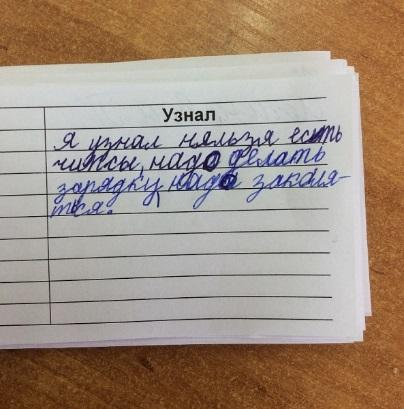 Узнал
Я узнал няльзя есть
чипсы, надо делать
зарядку, надо закаля-
тся.